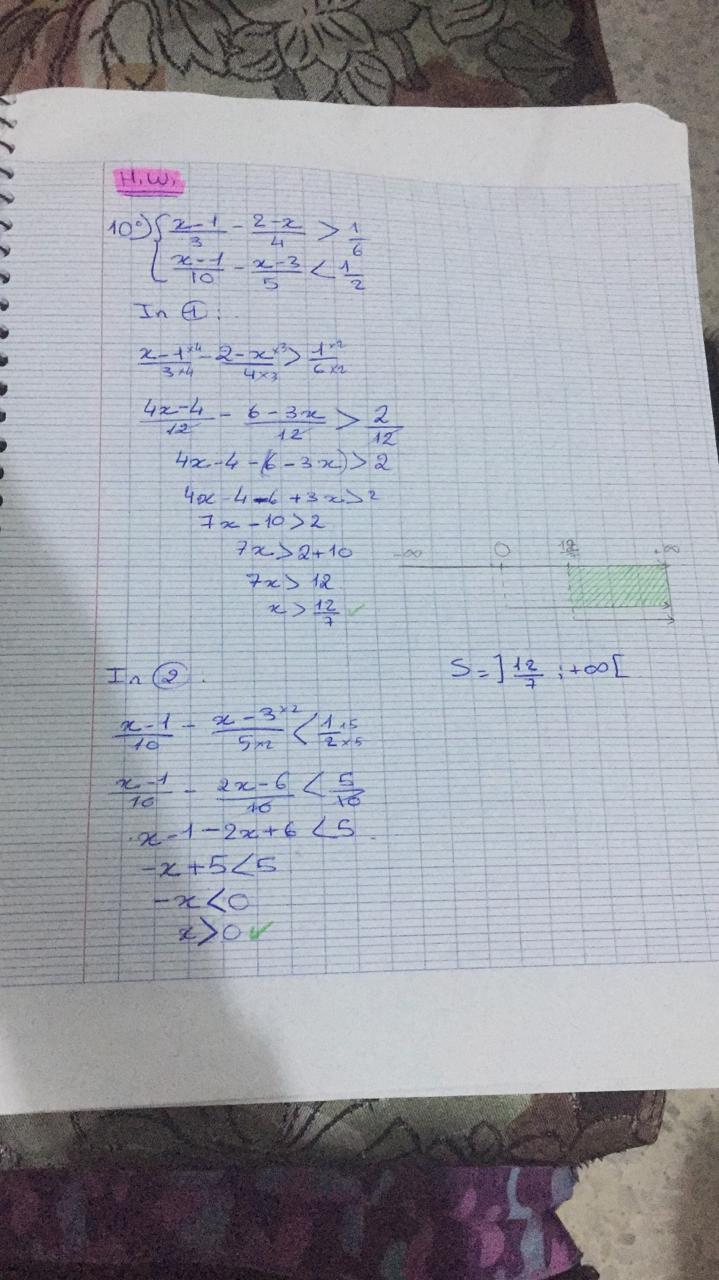 H.W.
10°) { x-1/3 - 2-x/4 > 1/6
x-1/10 - x-3/5 < 1/2
In ①:
x-1 ×4/3×4 - 2-x ×3/4×3 > 1 ×2/6×2
4x-4/12 - 6-3x/12 > 2/12
4x-4-(6-3x)>2
4x-4-6+3x>2
7x-10>2
7x>2+10
7x>12
x>12/7 ✓
-∞ 0 12/7 +∞
In ②.
S=]12/7;+∞[
x-1/10 - x-3 ×2/5×2 < 1 ×5/2×5
x-1/10 - 2x-6/10 < 5/10
x-1-2x+6<5
-x+5<5
-x<0
x>0 ✓